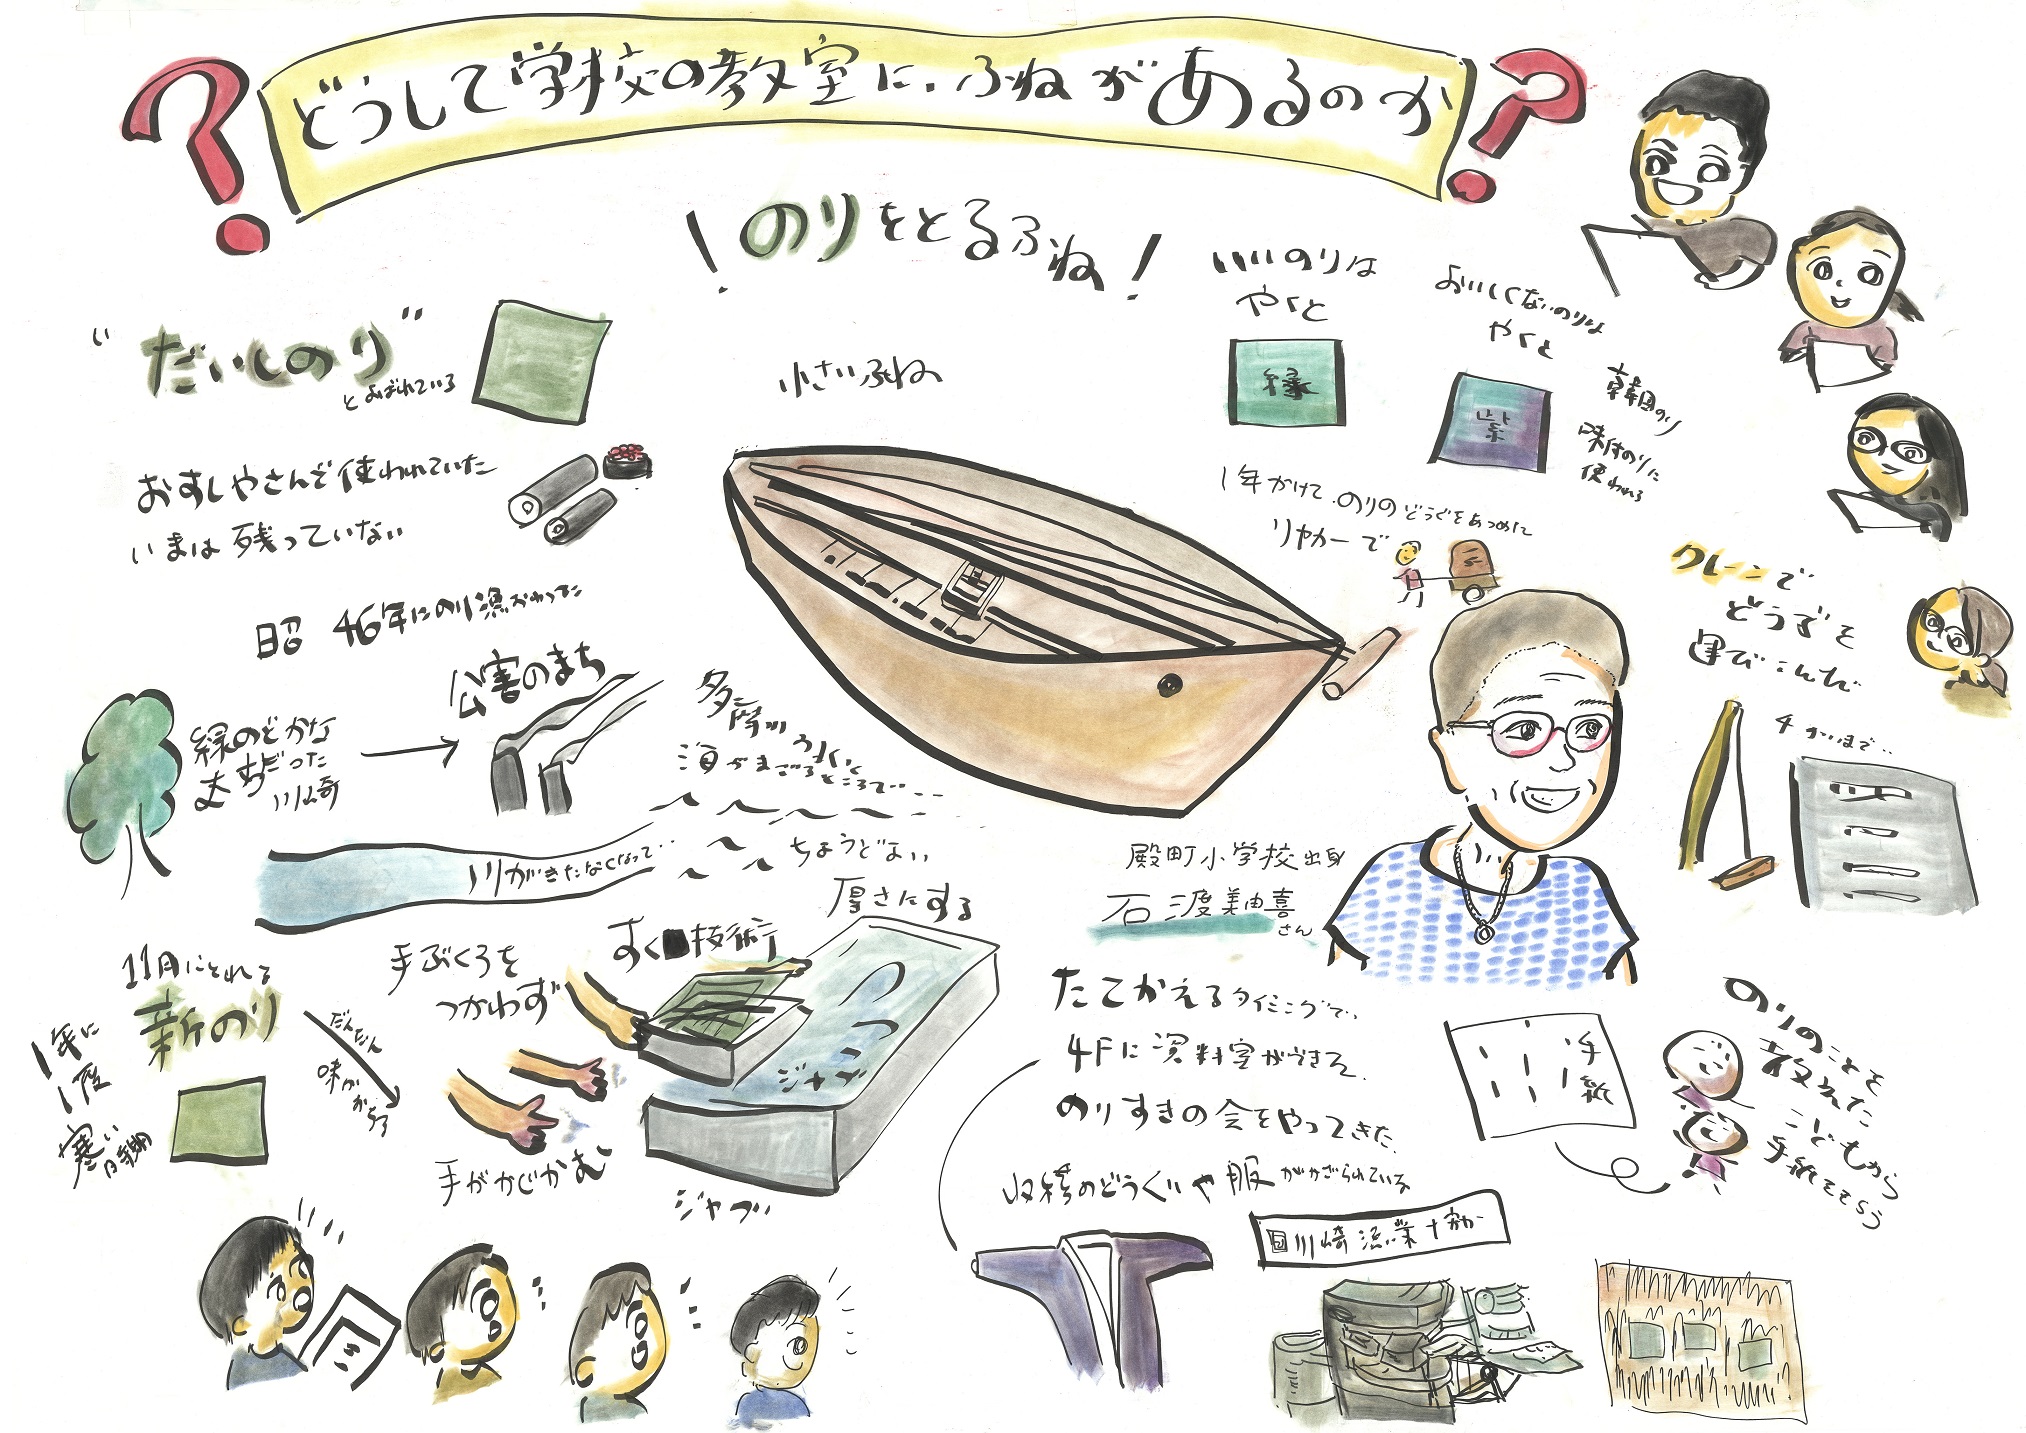 どうして学校の教室に、ふねがあるのか
！のりをとるふね！
"だいしのり"
とよばれている
おすしやさんで使われていた
いまは残っていない
昭 46年にのり漁おわった
緑のどかな
まちだった
川崎
公害のまち
川がきたなくなって…
多摩川の水と
海がまざるところで…
ちょうどよい
厚さにする
小さいふね
いいのりは
やくと
緑
おいしくないのりは
やくと
紫
韓国のり
味付のりに
使われる
1年かけて、のりのどうぐをあつめて
リヤカーで
クレーンで
どうぐを
運びこんだ
4かいまで…
殿町小学校出身
石渡美由喜
さん
11月にとれる
新のり
1年に
1度
寒い
時期
だんだん
味がかわる
手ぶくろを
つかわず
すく技術
手がかじかむ
ジャブッ
ジャブッ
たてかえるタイミングで、
4Fに資料室ができた
のりすきの会をやってきた
収穫のどうぐや服がかざられている
川崎漁業
手紙
のりのことを
教えた
こどもから
手紙をもらう